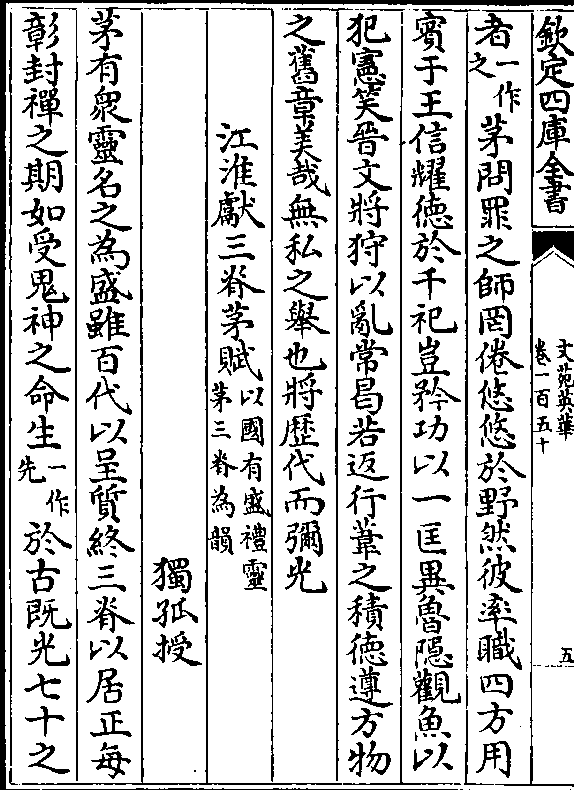 欽定四庫全書
文苑英華
卷一百五十
五
者一作之茅問罪之師罔倦悠悠於野然彼率職四方用
賓于王信耀德於千祀豈矜功以一匡異魯隱觀魚以
犯憲笑晉文將狩以亂常曷若返行葦之積德遵方物
之舊章美哉無私之舉也將歷代而彌光
江淮獻三脊茅賦以國有盛禮靈茅三脊為韻
獨孤授
茅有衆靈名之為盛雖百代以呈質終三脊以居正每
彰封禪之期如受鬼神之命生一作先於古既光七十之